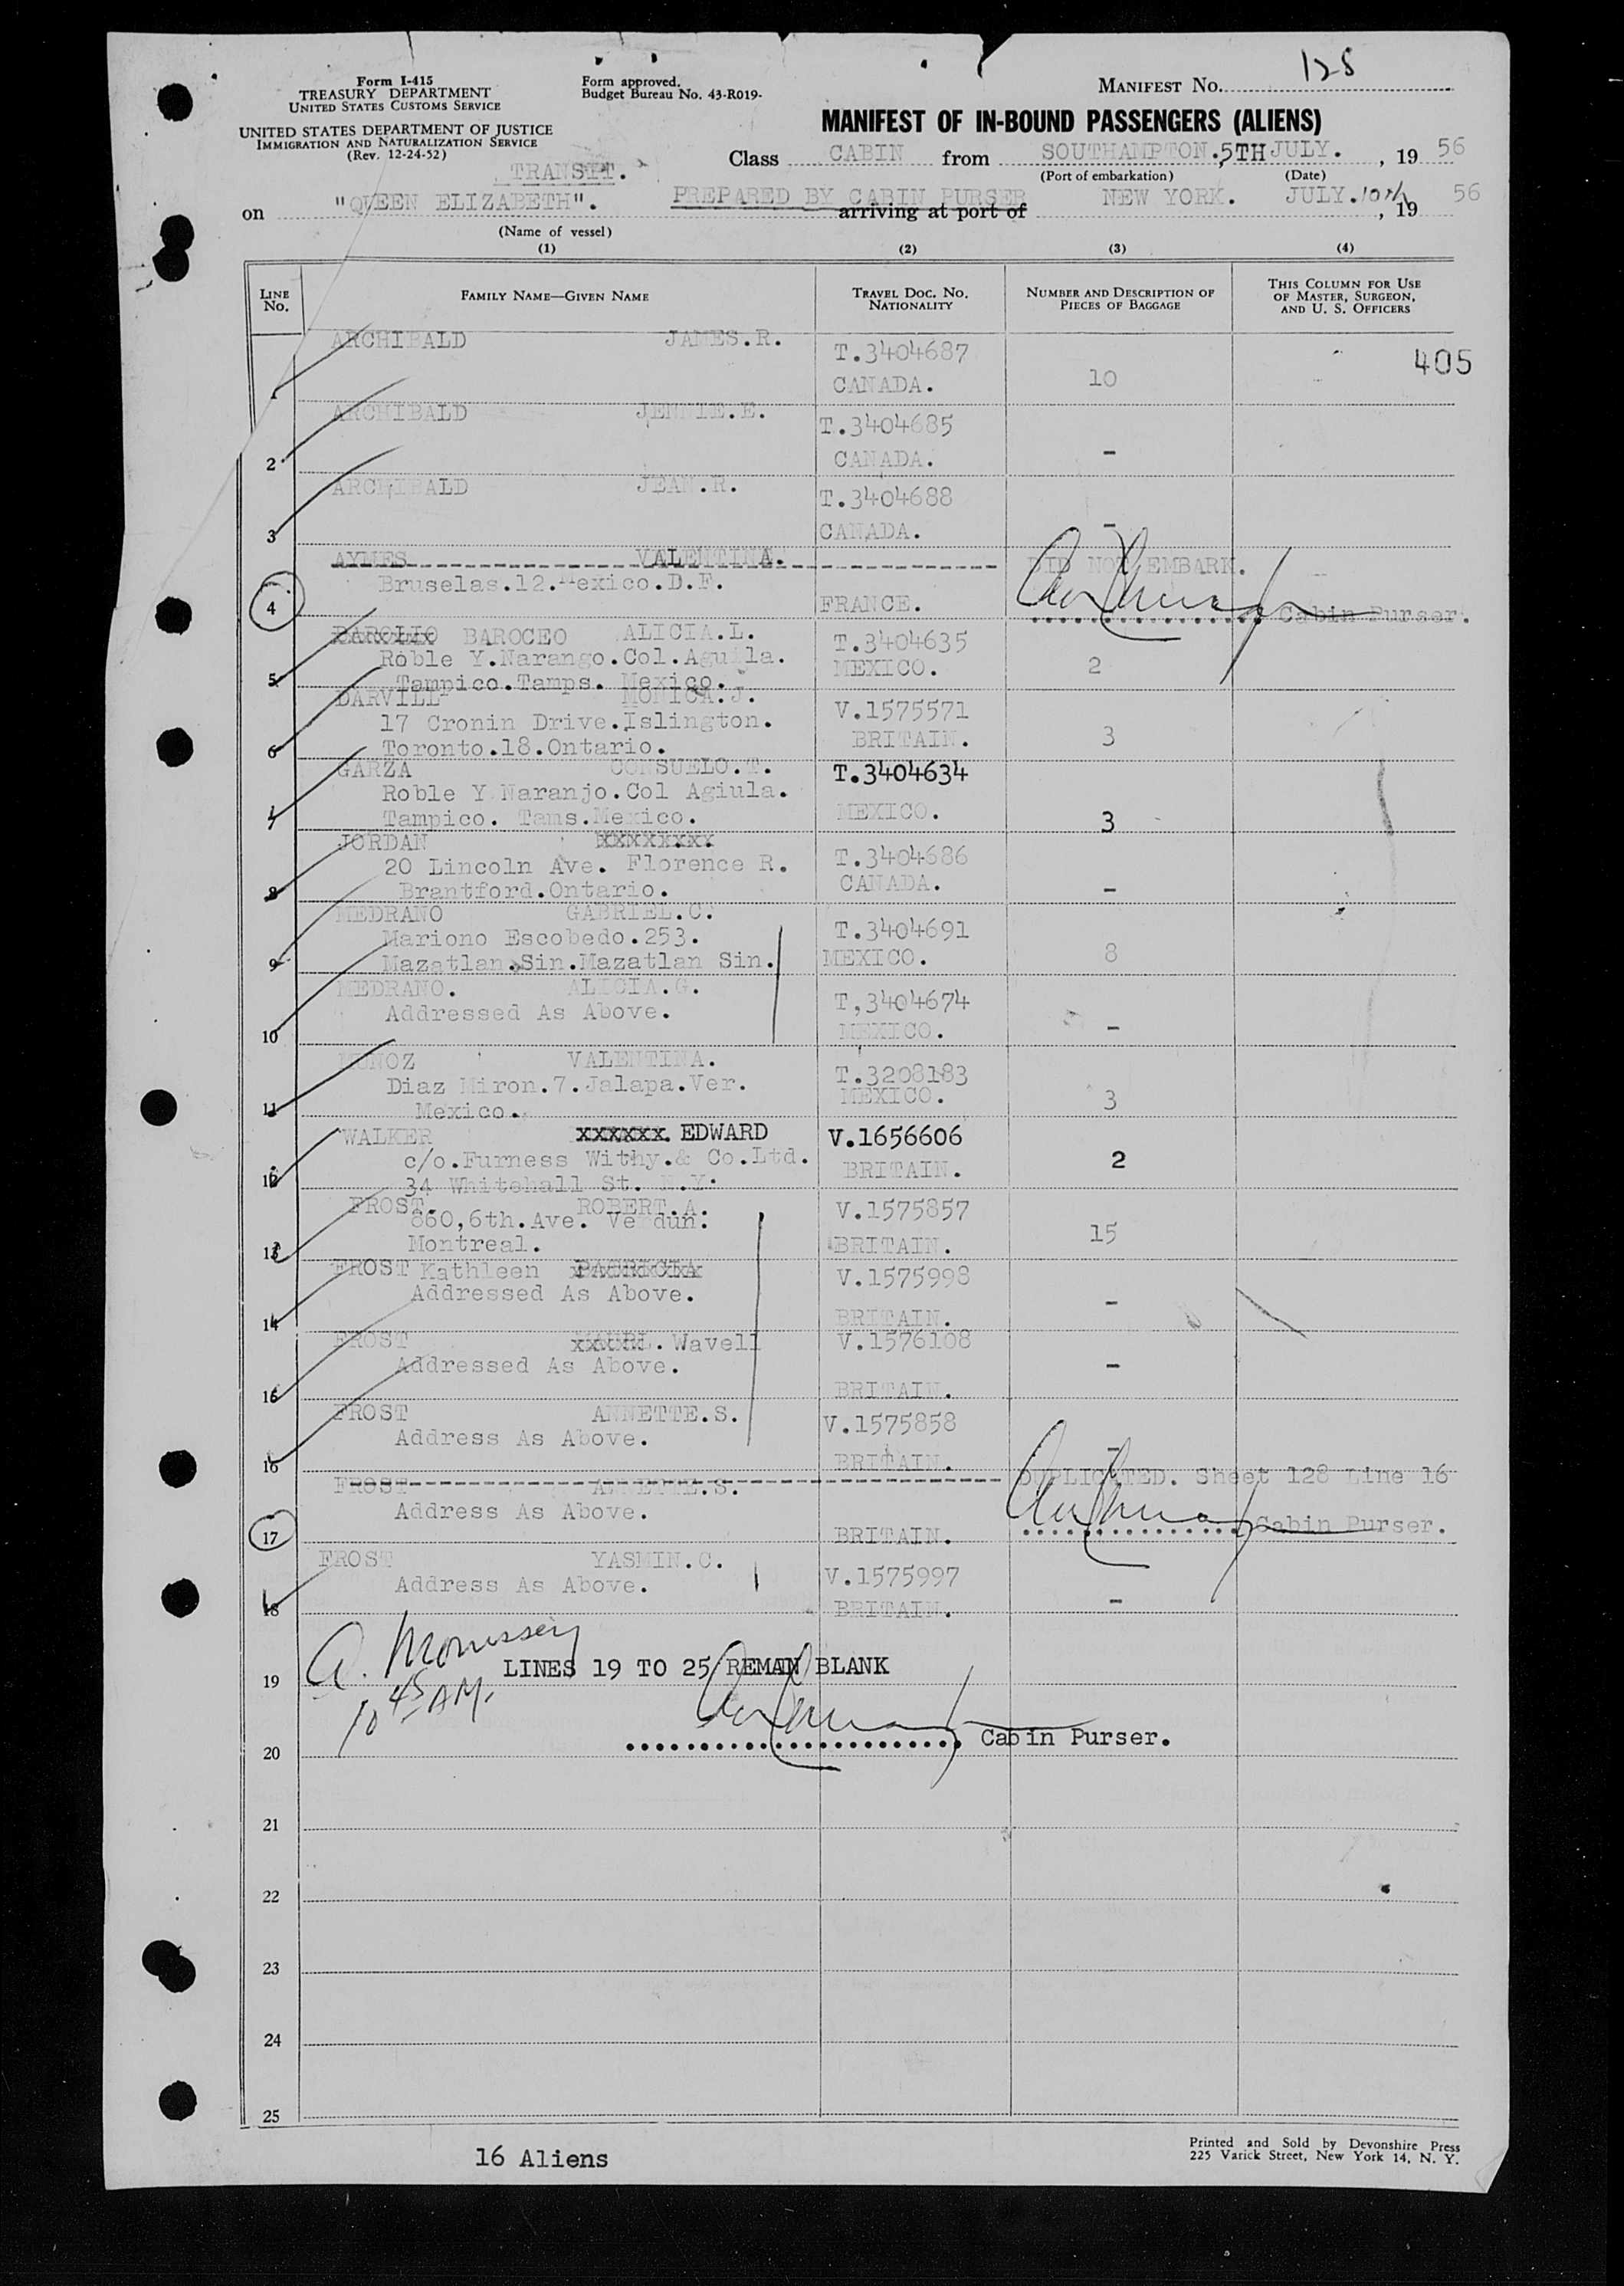 Form I-415
TREASURY DEPARTMENT
UNITED STATES CUSTOMS SERVICE
UNITED STATES DEPARTMENT OF JUSTICE
IMMIGRATION AND NATURALIZATION SERVICE
(Rev. 12-24-52)
Form approved.
Budget Bureau No. 43-R019-
MANIFEST NO. 128
MANIFEST OF IN-BOUND PASSENGERS (ALIENS)
Class CABIN from SOUTHAMPTON. 5TH JULY. , 19 56
(Port of embarkation) (Date)
TRANSIT.
on "QUEEN ELIZABETH". PREPARED BY CABIN PURSER arriving at port of NEW YORK. JULY. 10th , 19 56
(Name of vessel)
(1) (2) (3) (4)
LINE NO. FAMILY NAME—GIVEN NAME TRAVEL DOC. NO. NATIONALITY NUMBER AND DESCRIPTION OF PIECES OF BAGGAGE THIS COLUMN FOR USE OF MASTER, SURGEON, AND U. S. OFFICERS
ARCHIBALD JAMES.R. T.3404687 405
CANADA. 10
ARCHIBALD JENNIE.E. T.3404685
2 CANADA. -
ARCHIBALD JEAN.R. T.3404688
3 CANADA. -
AYMES VALENTINA. DID NOT EMBARK.
Bruselas.12.Mexico.D.F.
4 FRANCE. Cabin Purser.
BAROLIO BAROCEO ALICIA.L. T.3404635
Roble Y.Narango.Col.Aguila. MEXICO. 2
5 Tampico.Tamps. Mexico.
DARVILL MONICA.J. V.1575571
17 Cronin Drive.Islington. BRITAIN. 3
6 Toronto.18.Ontario.
GARZA CONSUELO.T. T.3404634
Roble Y Naranjo.Col Agiula. MEXICO.
7 Tampico. Tams.Mexico. 3
JORDAN XXXXXXXX T.3404686
20 Lincoln Ave. Florence R. CANADA.
8 Brantford.Ontario. -
MEDRANO GABRIEL.C. T.3404691
Mariono Escobedo.253. MEXICO. 8
9 Mazatlan.Sin.Mazatlan Sin.
MEDRANO. ALICIA.G. T,3404674
Addressed As Above. MEXICO. -
10
MUNOZ VALENTINA. T.3208183
Diaz Miron.7.Jalapa.Ver. MEXICO. 3
11 Mexico.
WALKER XXXXXX. EDWARD V.1656606
c/o.Furness Withy.& Co.Ltd. BRITAIN. 2
12 34 Whitehall St. N.Y.
FROST. ROBERT.A. V.1575857
860,6th.Ave. Verdun. 15
13 Montreal. BRITAIN.
FROST Kathleen V.1575998
Addressed As Above. -
14 BRITAIN.
FROST . Wavell V.1576108
Addressed As Above. -
15 BRITAIN.
FROST ANNETTE.S. V.1575858
Address As Above. -
16 BRITAIN.
FROST ANNETTE.S. DUPLICATED. Sheet 128 Line 16
Address As Above. Cabin Purser.
17 BRITAIN.
FROST YASMIN.C. V.1575997
Address As Above.
18 BRITAIN. -
A. Morrissey
19 LINES 19 TO 25 REMAIN BLANK
10 45 AM.
20 Cabin Purser.
21
22
23
24
25
16 Aliens
Printed and Sold by Devonshire Press
225 Varick Street, New York 14, N. Y.